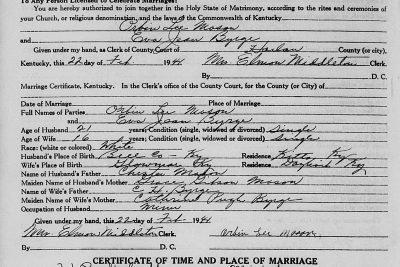 To Any Person Licensed to Celebrate Marriages:
You are hereby authorized to join together in the Holy State of Matrimony, according to the rites and ceremonies of
your Church, or religious denomination, and the laws of the Commonwealth of Kentucky,
Orbin Lee Mason
and Eva Jean Byrge
Given under my hand, as Clerk of County Court of Harlan County (or city),
Kentucky, this 22 day of Feb 1944 Mrs Elmon Middleton Clerk.
By D. C.
Marriage Certificate, Kentucky. In the Clerk's office of the County Court, for the County (or City) of
Date of Marriage Place of Marriage
Full Names of Parties, Orbin Lee Mason
and Eva Jean Byrge
Age of Husband 21 years; Condition (single, widowed or divorced) Single
Age of Wife 16 years; Condition (single, widowed or divorced) Single
Race: (white or colored) White
Husband's Place of Birth Bell Co - Ky Residence Ky
Wife's Place of Birth Ky Residence Ky
Name of Husband's Father Chester Mason
Maiden Name of Husband's Mother Mason
Name of Wife's Father Byrge
Maiden Name of Wife's Mother Catherine Pugh Byrge
Occupation of Husband Miner
Given under my hand, this 22 day of Feb. 1944
Mrs. Elmon Middleton Clerk. Orbin Lee Mason
By D. C.
CERTIFICATE OF TIME AND PLACE OF MARRIAGE